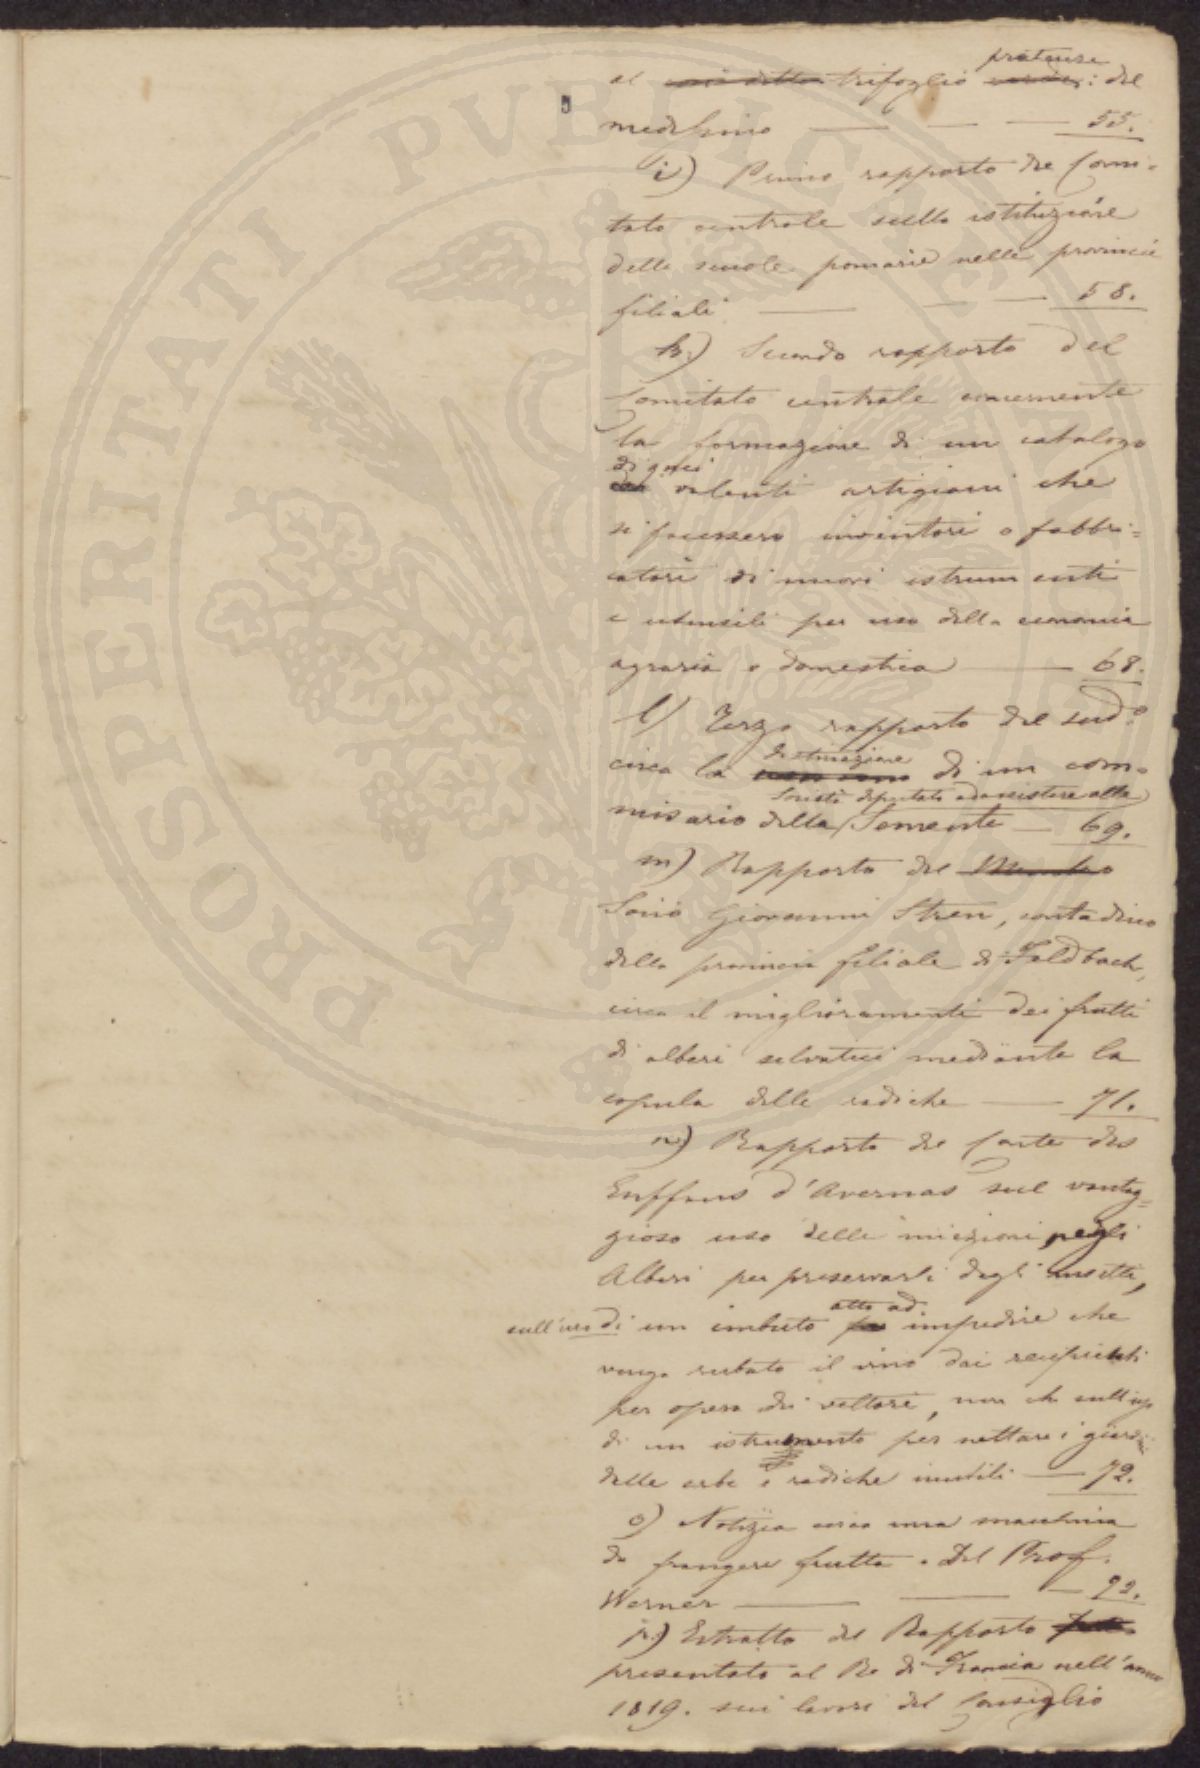 pratense
al così detto trifoglio verde: del
medesimo — — — 55.
i) Primo rapporto del Comi-
tato centrale sulla istituzione
delle scuole pomarie nelle provincie
filiali — — — 58.
k.) Secondo rapporto del
Comitato centrale concernente
la formazione di un catalogo
di quei
valenti artigiani che
si facessero inventori o fabbri=
catori di nuovi istrumenti
e utensili per uso della economia
agraria e domestica — 68.
l) Terzo rapporto del sudo.
destinazione
circa la di un com=
Società deputato ad assistere alla
missario della Semente — 69.
m) Rapporto del Membro
Socio Giovanni Stren, contadino
della provincia filiale di Feldbach,
circa il miglioramenti dei frutti
di alberi selvatici mediante la
copula delle radiche — 71.
n) Rapporto del Conte des
Enffans d'Avernas sul vantag=
gioso uso delle unzioni negli
Alberi per preservarli dagli insetti,
atto ad
sull'uso di un imbuto per impedire che
venga rubato il vino dai recipienti
per opera dei vettori, non che sull'uso
di un istrumento per nettare i giardini
delle erbe e radiche inutili — 72.
o) Notizia circa una macchina
da frangere frutta. Del Prof.
Werner — — — 92.
p.) Estratto del Rapporto fatto
presentato al Re di Francia nell'anno
1819. sui lavori del Consiglio
PROSPERITATI PUBLICAE